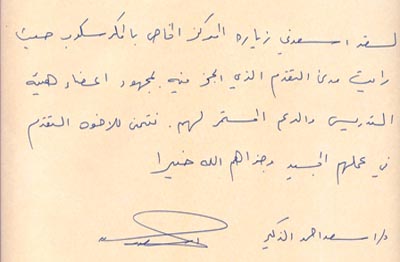 لقد اسعدني زيارة المركز الخاص بالمكرسكوب حيث
رايت مدى التقدم الذي انجز فيه بمجهود اعضاء هيئة
التدريس والدعم المستمر لهم. فنتمنى للاخوه التقدم
في عملهم الجيد وجزاهم الله خيرا
د/ اسعد احمد الذكير